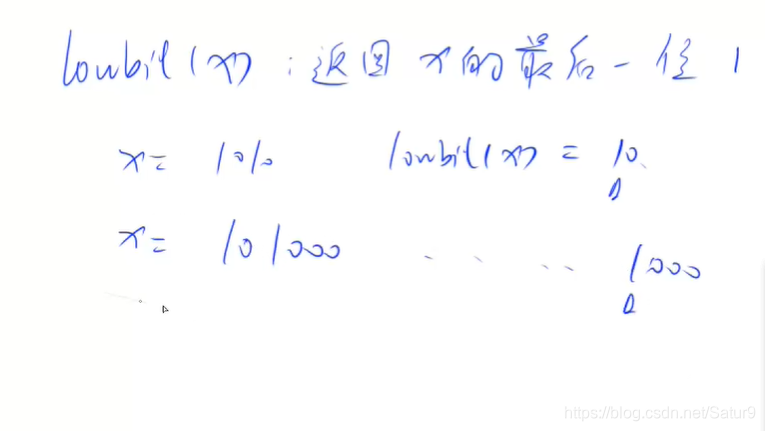 lowbit(x) : 返回 x的最后一位 1
x = 1010 lowbit(x) = 10
x = 101000 . . . . 1000
https://blog.csdn.net/Satur9